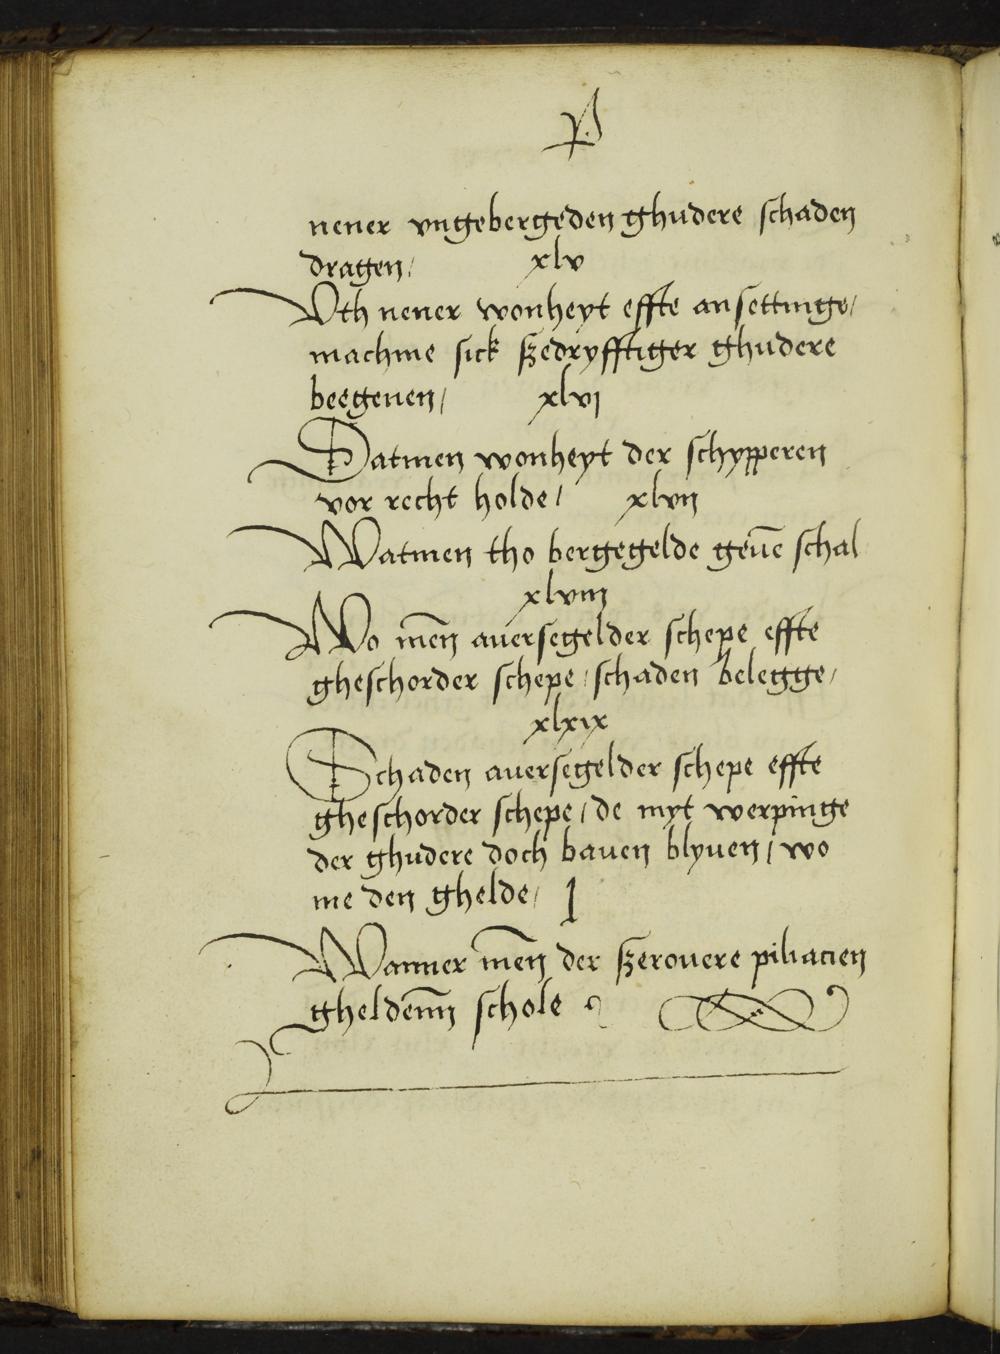 P
nener vngebergeden ghudere schaden
dragen / xlv
Vth nener wonheyt effte ansettinge /
machme sick szedryfftiger ghudere
beegenen / xlvi
Datmen wonheyt der schypperen
vor recht holde / xlvij
Watmen tho bergegelde geuē schal
xlviij
Wo mēn auersegelder schepe effte
gheschorder schepe / schaden belegge /
xlxix
Schaden auersegelder schepe effte
gheschorder schepe / de myt werpinge
der ghudere doch bauen blyuen / wo
me den ghelde / l
Wanner mēn der szerouere piliatien
gheldenn̄ schole